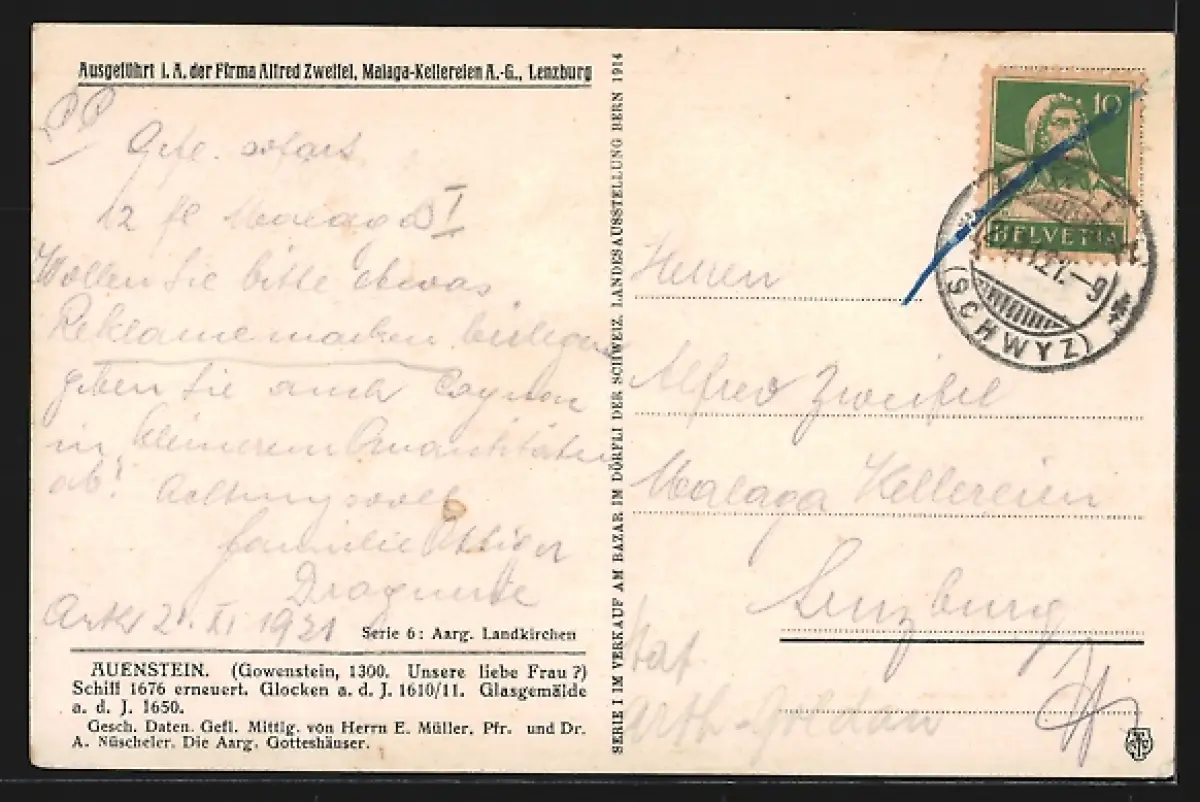 Ausgeführt i. A. der Firma Alfred Zweifel, Malaga-Kellereien A.-G., Lenzburg
Gefl. sofort
12 fl Malaga I
Wollen Sie bitte etwas
Reklamemarken beilegen
geben Sie auch Cognac
in kleineren Quantitäten
ab! Achtungsvoll
Familie
Droguerie
Arth 21. XI 1921
Serie 6: Aarg. Landkirchen
AUENSTEIN. (Gowenstein, 1300. Unsere liebe Frau?)
Schiff 1676 erneuert. Glocken a. d. J. 1610/11. Glasgemälde
a. d. J. 1650.
Gesch. Daten. Gefl. Mittlg. von Herrn E. Müller, Pfr. und Dr.
A. Nüscheler. Die Aarg. Gotteshäuser.
SERIE I IM VERKAUF AM BAZAR IM DÖRFLI DER SCHWEIZ. LANDESAUSSTELLUNG BERN 1914
10
HELVETIA
21.-9
(SCHWYZ)
Herren
Alfred Zweifel
Malaga Kellereien
Lenzburg
Stat
Arth-Goldau